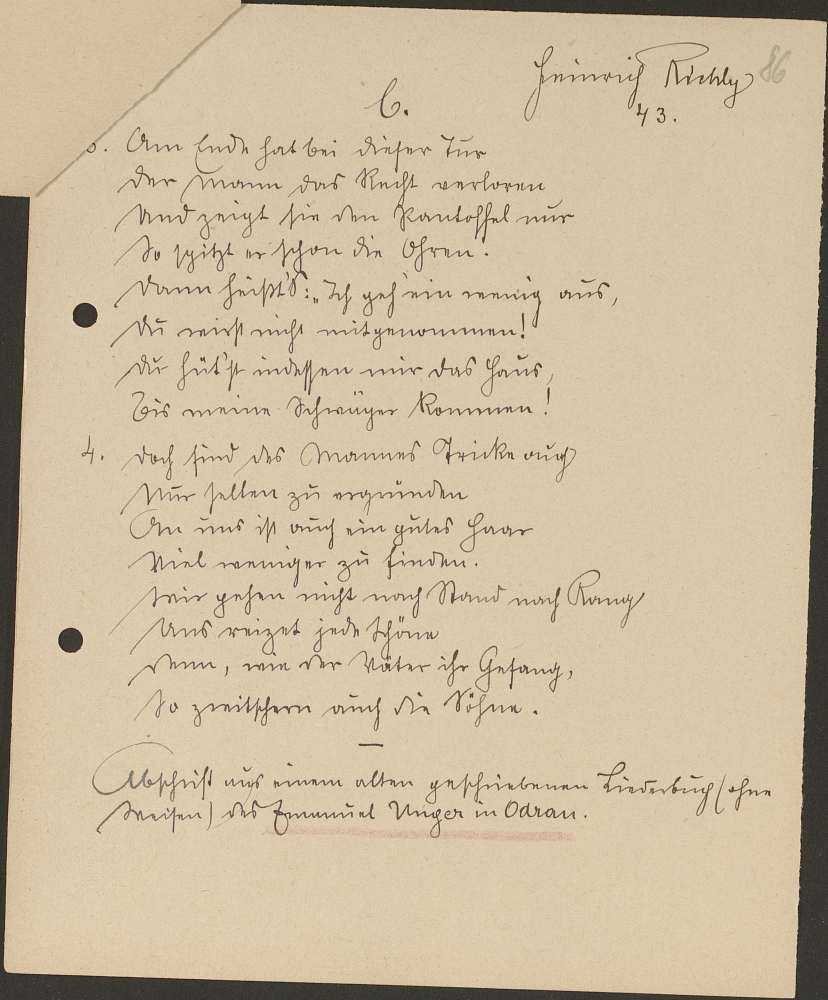 Heinrich Richly 86
43.
6.
3. Am Ende hat bei dieser Tur
Der Mann das Recht verloren
Und zeigt sie den Pantoffel nur
So spitzt er schon die Ohren.
Dann heißt's: „Ich geh' ein wenig aus,
Du wirst nicht mitgenommen!
Du hüt'st indessen mir das Haus,
Bis meine Schwäger kommen!
4. Doch sind des Mannes Tricke auch
Nur selten zu ergründen
An uns ist auch ein gutes Haar
Viel weniger zu finden.
Wir gehen nicht nach Stand nach Rang
Uns reizet jede Schöne
Denn, wie der Väter ihr Gesang,
So zwitschern auch die Söhne.
Abschrift aus einem alten geschriebenen Liederbuch (ohne
Weisen) des Emanuel Unger in Odrau.